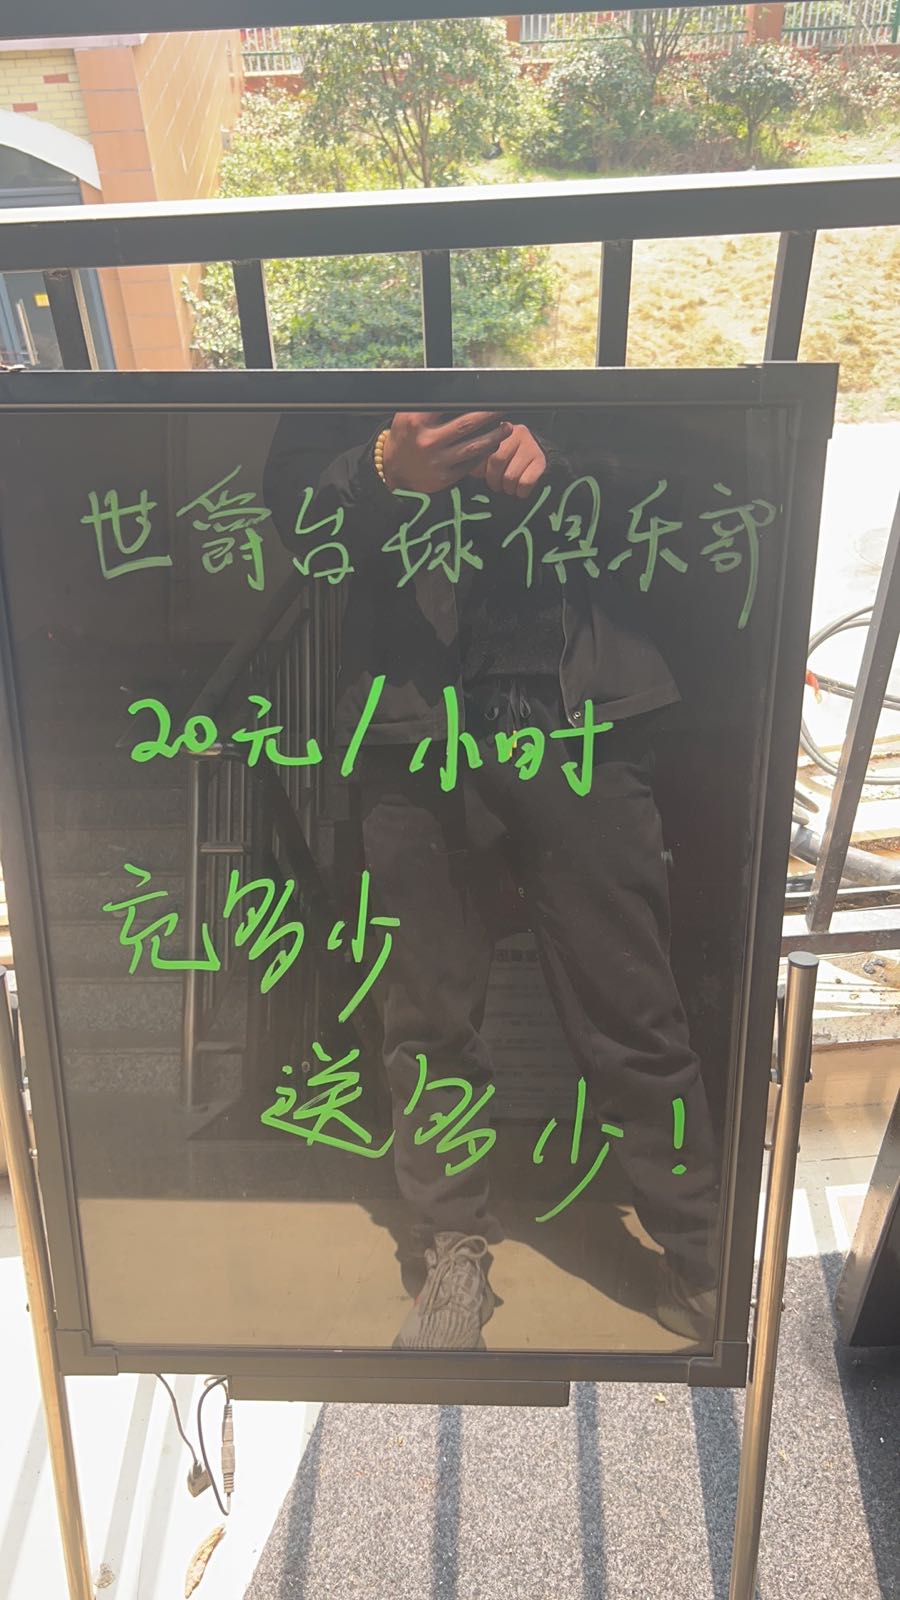 世爵台球俱乐部
20元/小时
充多少
送多少!